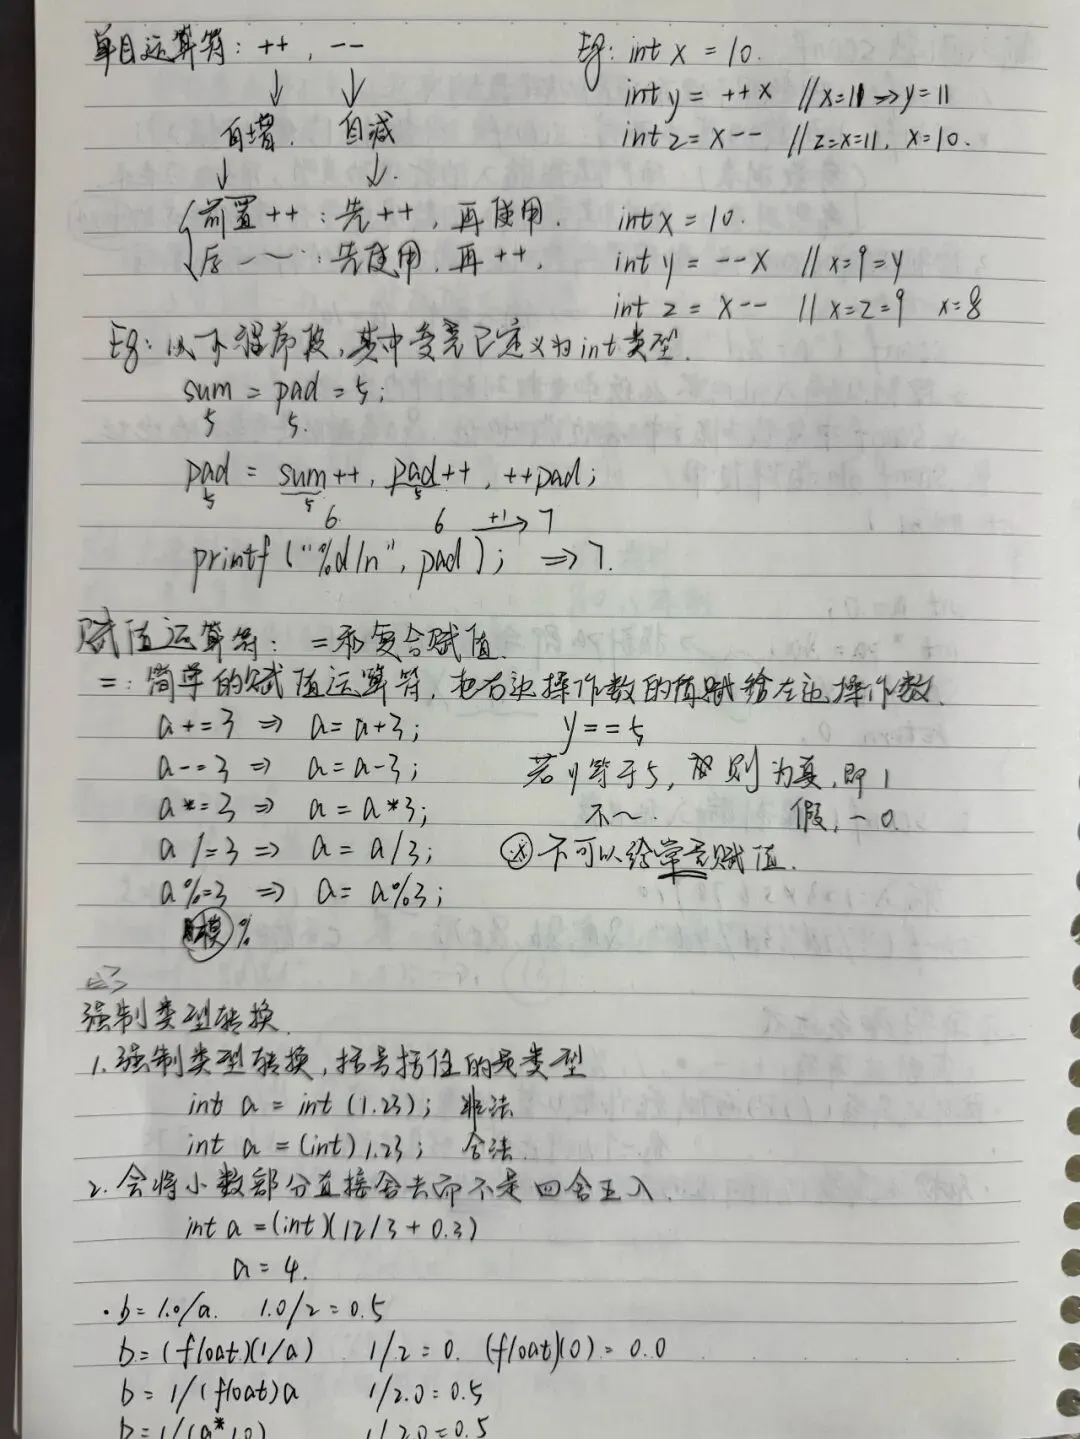 单目运算符: ++ , --
自增. 自减
前置++ : 先++, 再使用.
后 一 ～ : 先使用, 再 ++ .
Eg: int x = 10.
int y = ++x //x=11 => y=11
int z = x-- //z=x=11, x=10.
int x = 10.
int y = --x // x=9=y
int z = x-- // x=z=9 x=8
Eg: 以下程序段, 其中变量已定义为int类型.
sum = pad = 5;
5 5.
pad = sum++, pad++, ++pad;
5 5 5
6 6 +1→ 7
printf("%d/n", pad); => 7.
赋值运算符: =和复合赋值.
=: 简单的赋值运算符, 把右边操作数的值赋给左边操作数.
a+=3 => a=a+3;
a-=3 => a=a-3;
a*=3 => a=a*3;
a/=3 => a=a/3;
a%=3 => a=a%3;
模 %
y==5
若y等于5, 则为真, 即 1
不～. 假, ~ 0.
不可以给常量赋值.
强制类型转换
1. 强制类型转换, 括号括住的是类型
int a = int (1.23); 非法
int a = (int) 1.23; 合法.
2. 会将小数部分直接舍去而不是四舍五入.
int a = (int)(12/3 + 0.3)
a = 4.
· b = 1.0/a. 1.0/2 = 0.5
b = (float)(1/a) 1/2 = 0. (float)(0) = 0.0
b = 1/(float)a 1/2.0 = 0.5
b = 1/(a*1.0) 1/2.0 = 0.5